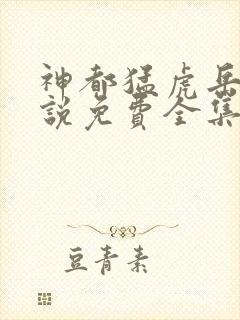 神都猛虎岳
說免費全集
豆青素